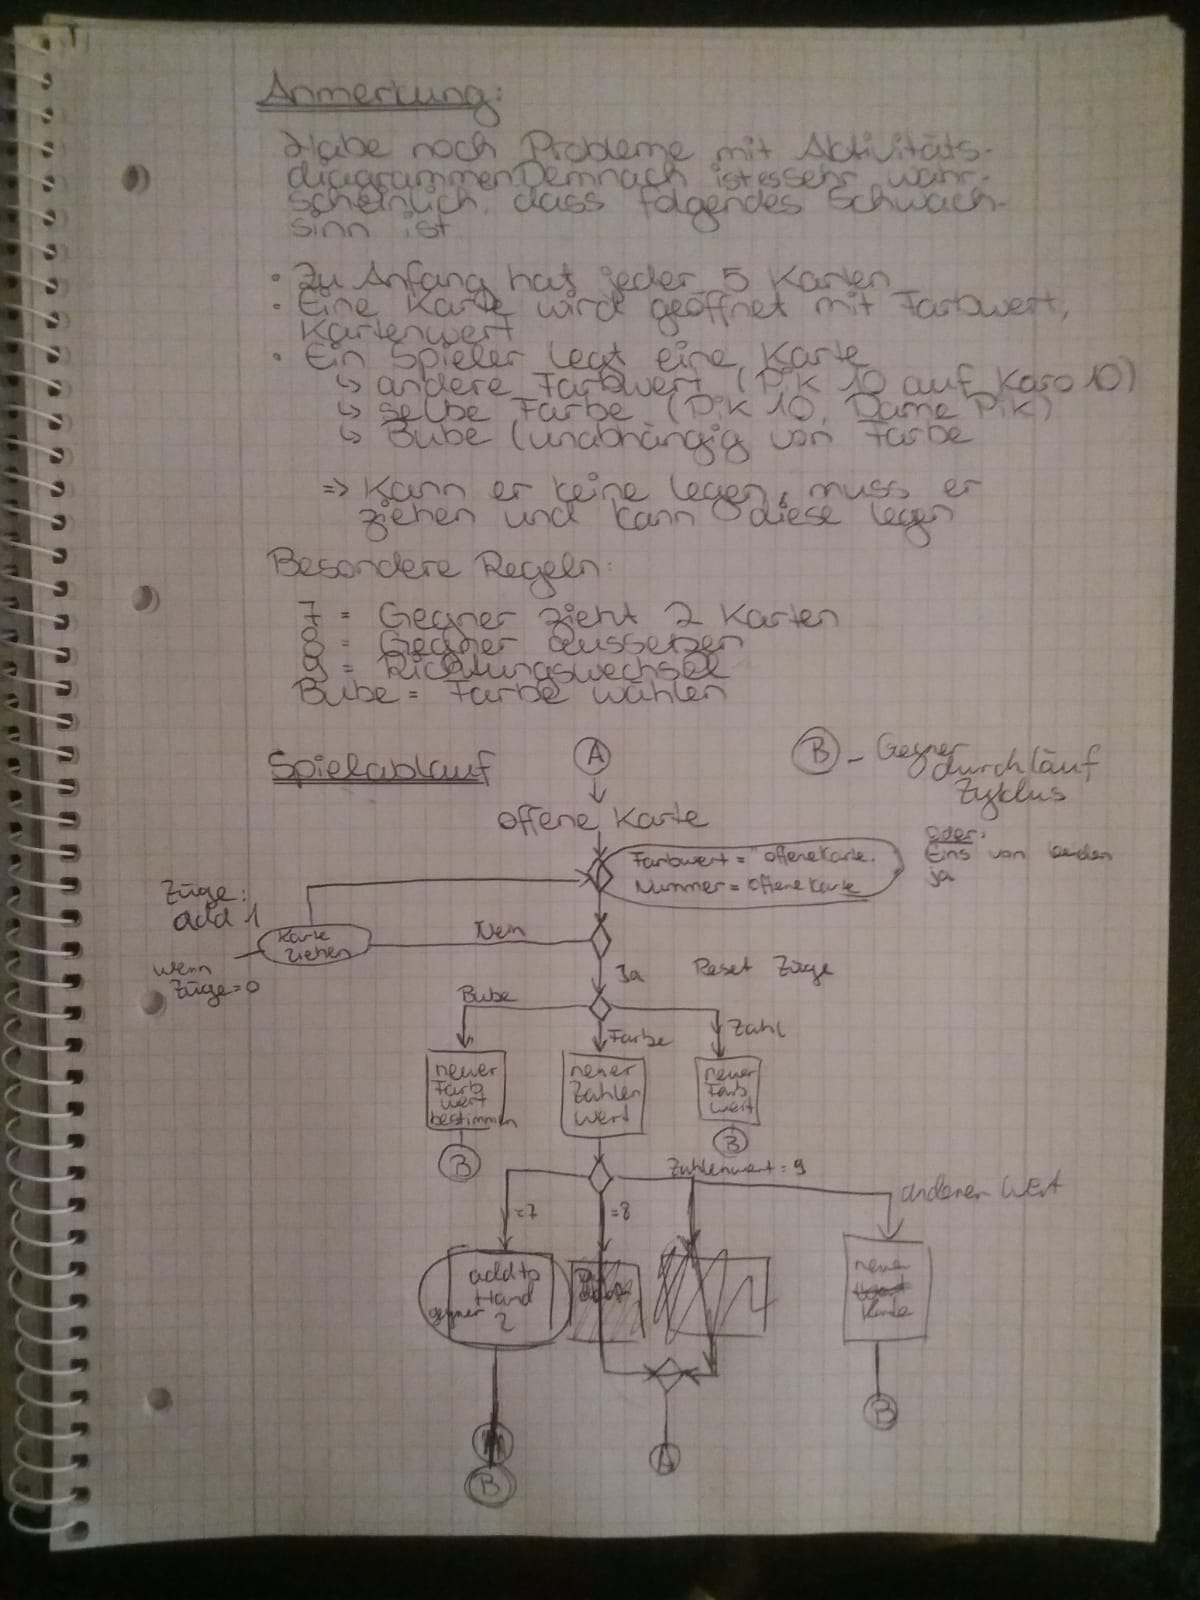 Anmerkung:
Habe noch Probleme mit Aktivitäts-
diagrammen. Demnach ist es sehr wahr-
scheinlich, dass folgendes Schwach-
sinn ist
• Zu Anfang hat jeder 5 Karten
• Eine Karte wird geöffnet mit Farbwert,
Kartenwert
• Ein Spieler legt eine Karte
↳ andere Farbwert (Pik 10 auf Karo 10)
↳ selbe Farbe (Pik 10, Dame Pik)
↳ Bube (unabhängig von Farbe
=> Kann er keine legen, muss er
ziehen und kann diese legen
Besondere Regeln:
7 = Gegner zieht 2 Karten
8 = Gegner aussetzen
9 = Richtungswechsel
Bube = Farbe wählen
Spielablauf
A
B - Gegner
durchläuf
Zyklus
offene Karte
Farbwert = "offeneKarte.
Nummer = offene Karte
oder:
Eins von beiden
ja
Züge:
add 1
Karte
ziehen
Nein
wenn
Züge = 0
Ja
Reset Züge
Bube
Farbe
Zahl
neuer
Farb
wert
bestimmen
neuer
Zahlen
wert
neuer
Farb
wert
B
B
Zahlenwert = 9
anderer Wert
=7
=8
add to
Hand
gegner 2
neue
Karte
B
A
B